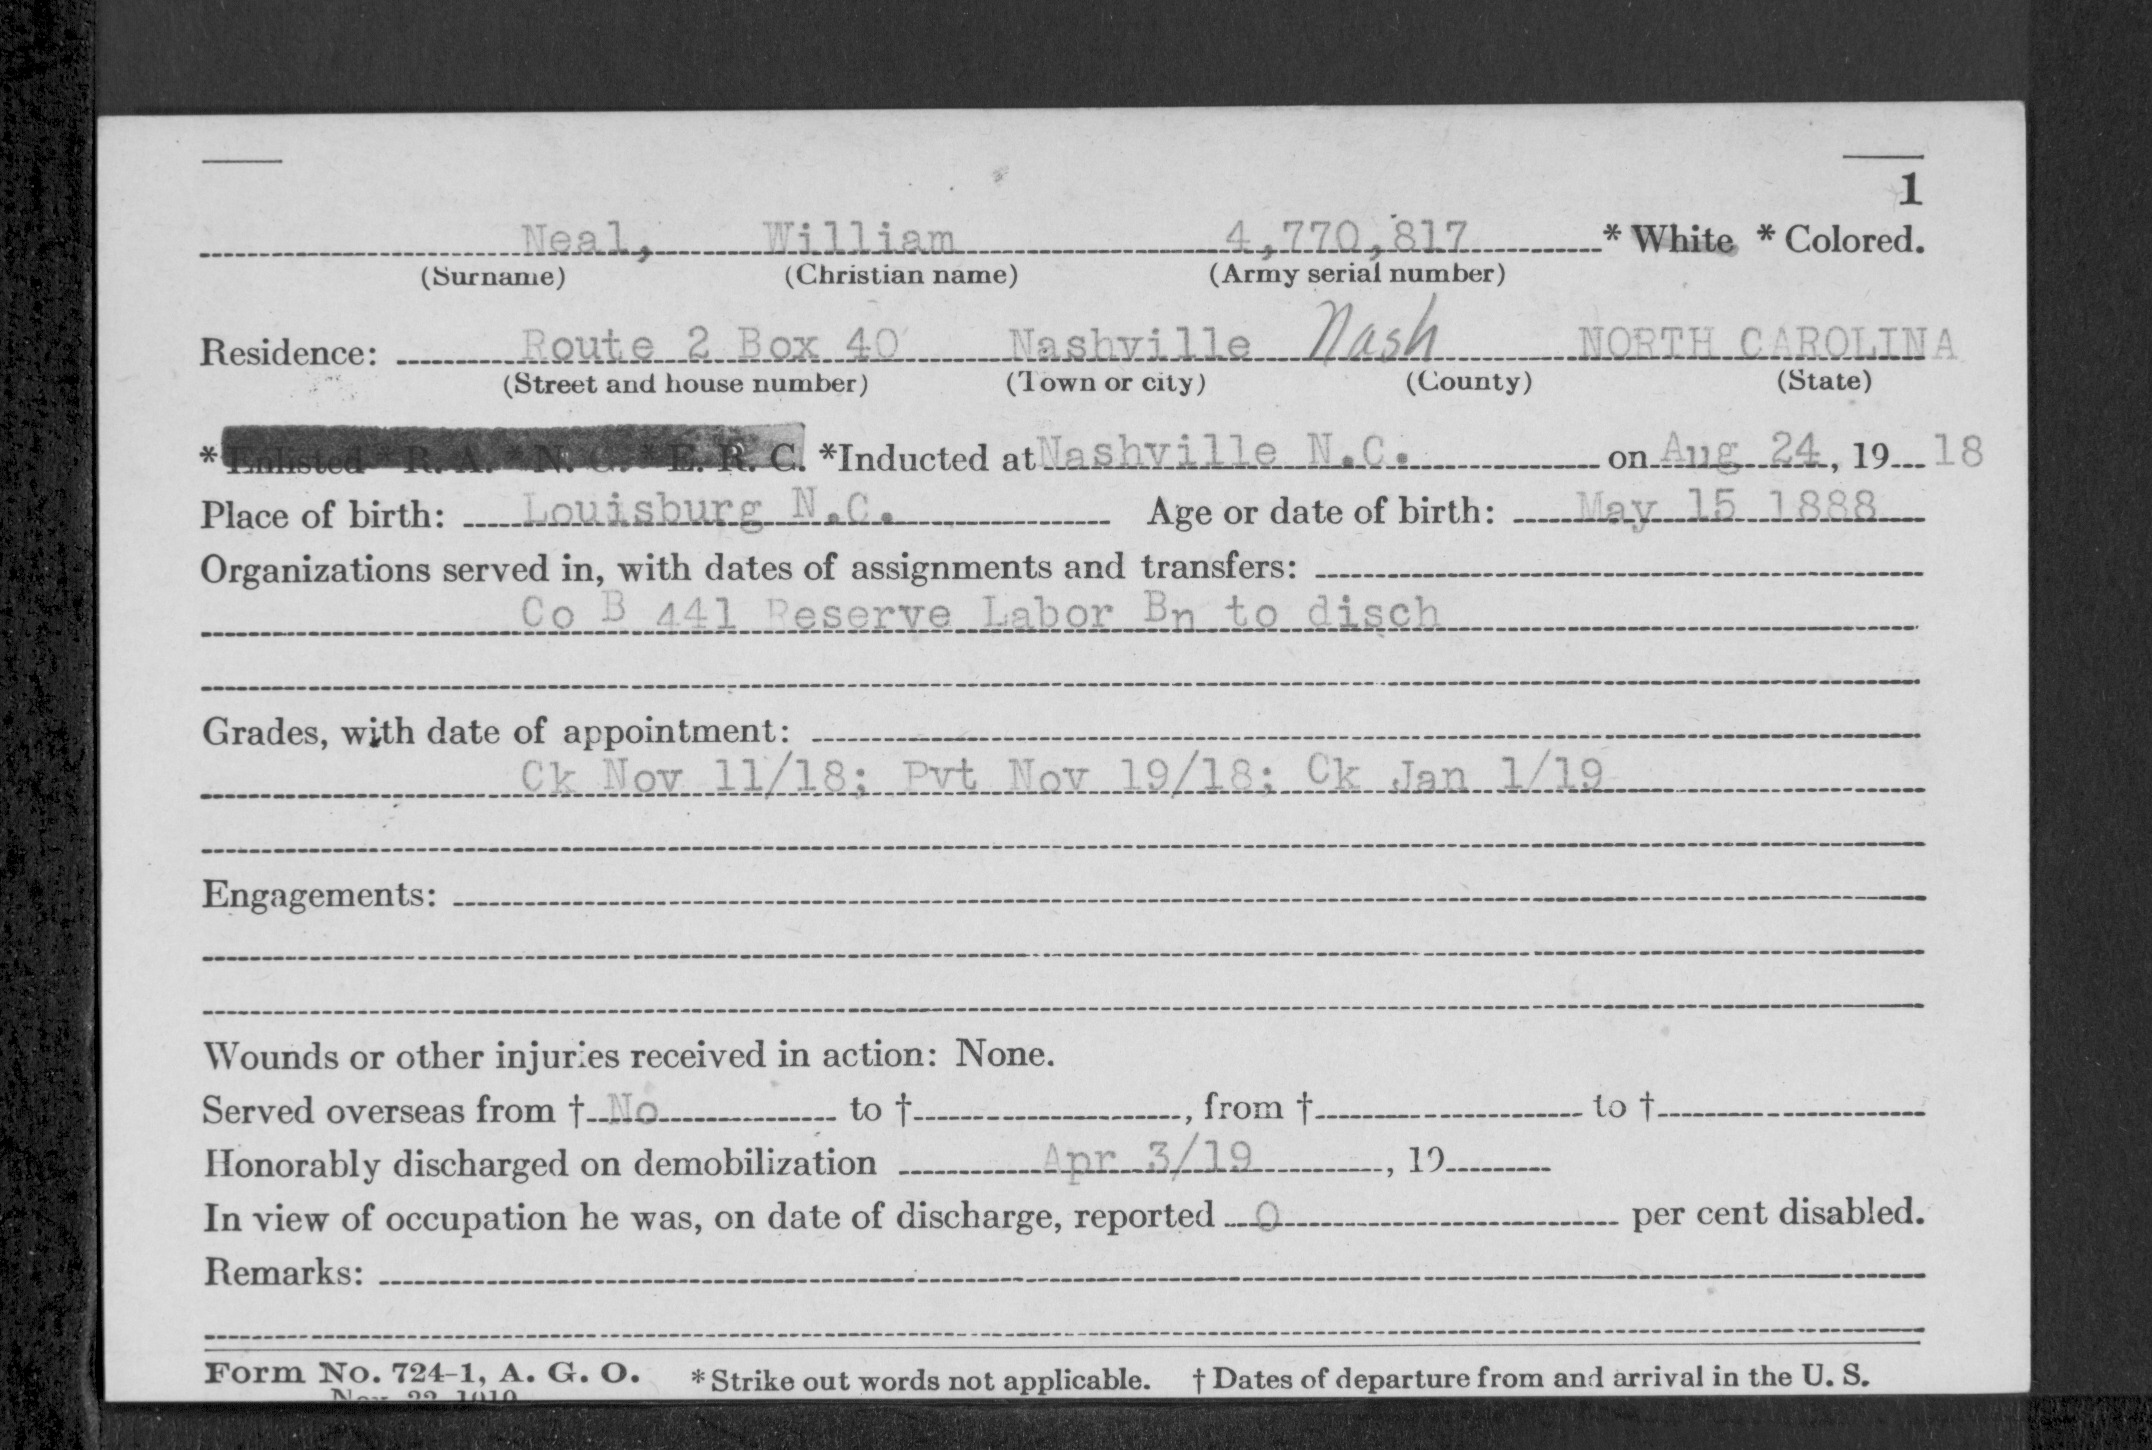 1
Neal, William 4,770,817 * White * Colored.
(Surname) (Christian name) (Army serial number)
Residence: Route 2 Box 40 Nashville Nash NORTH CAROLINA
(Street and house number) (Town or city) (County) (State)
* Enlisted * R. A. * N. G. * E. R. C. *Inducted at Nashville N.C. on Aug 24, 19 18
Place of birth: Louisburg N.C. Age or date of birth: May 15 1888
Organizations served in, with dates of assignments and transfers:
Co B 441 Reserve Labor Bn to disch
Grades, with date of appointment:
Ck Nov 11/18; Pvt Nov 19/18; Ck Jan 1/19
Engagements:
Wounds or other injuries received in action: None.
Served overseas from † No to †, from † to †
Honorably discharged on demobilization Apr 3/19, 19
In view of occupation he was, on date of discharge, reported 0 per cent disabled.
Remarks:
Form No. 724-1, A. G. O. * Strike out words not applicable. † Dates of departure from and arrival in the U. S.
Nov. 22, 1919